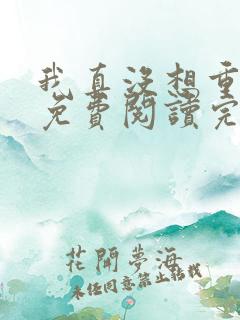 我真沒想重
免費閱讀完
花開夢海
未经同意禁止转载